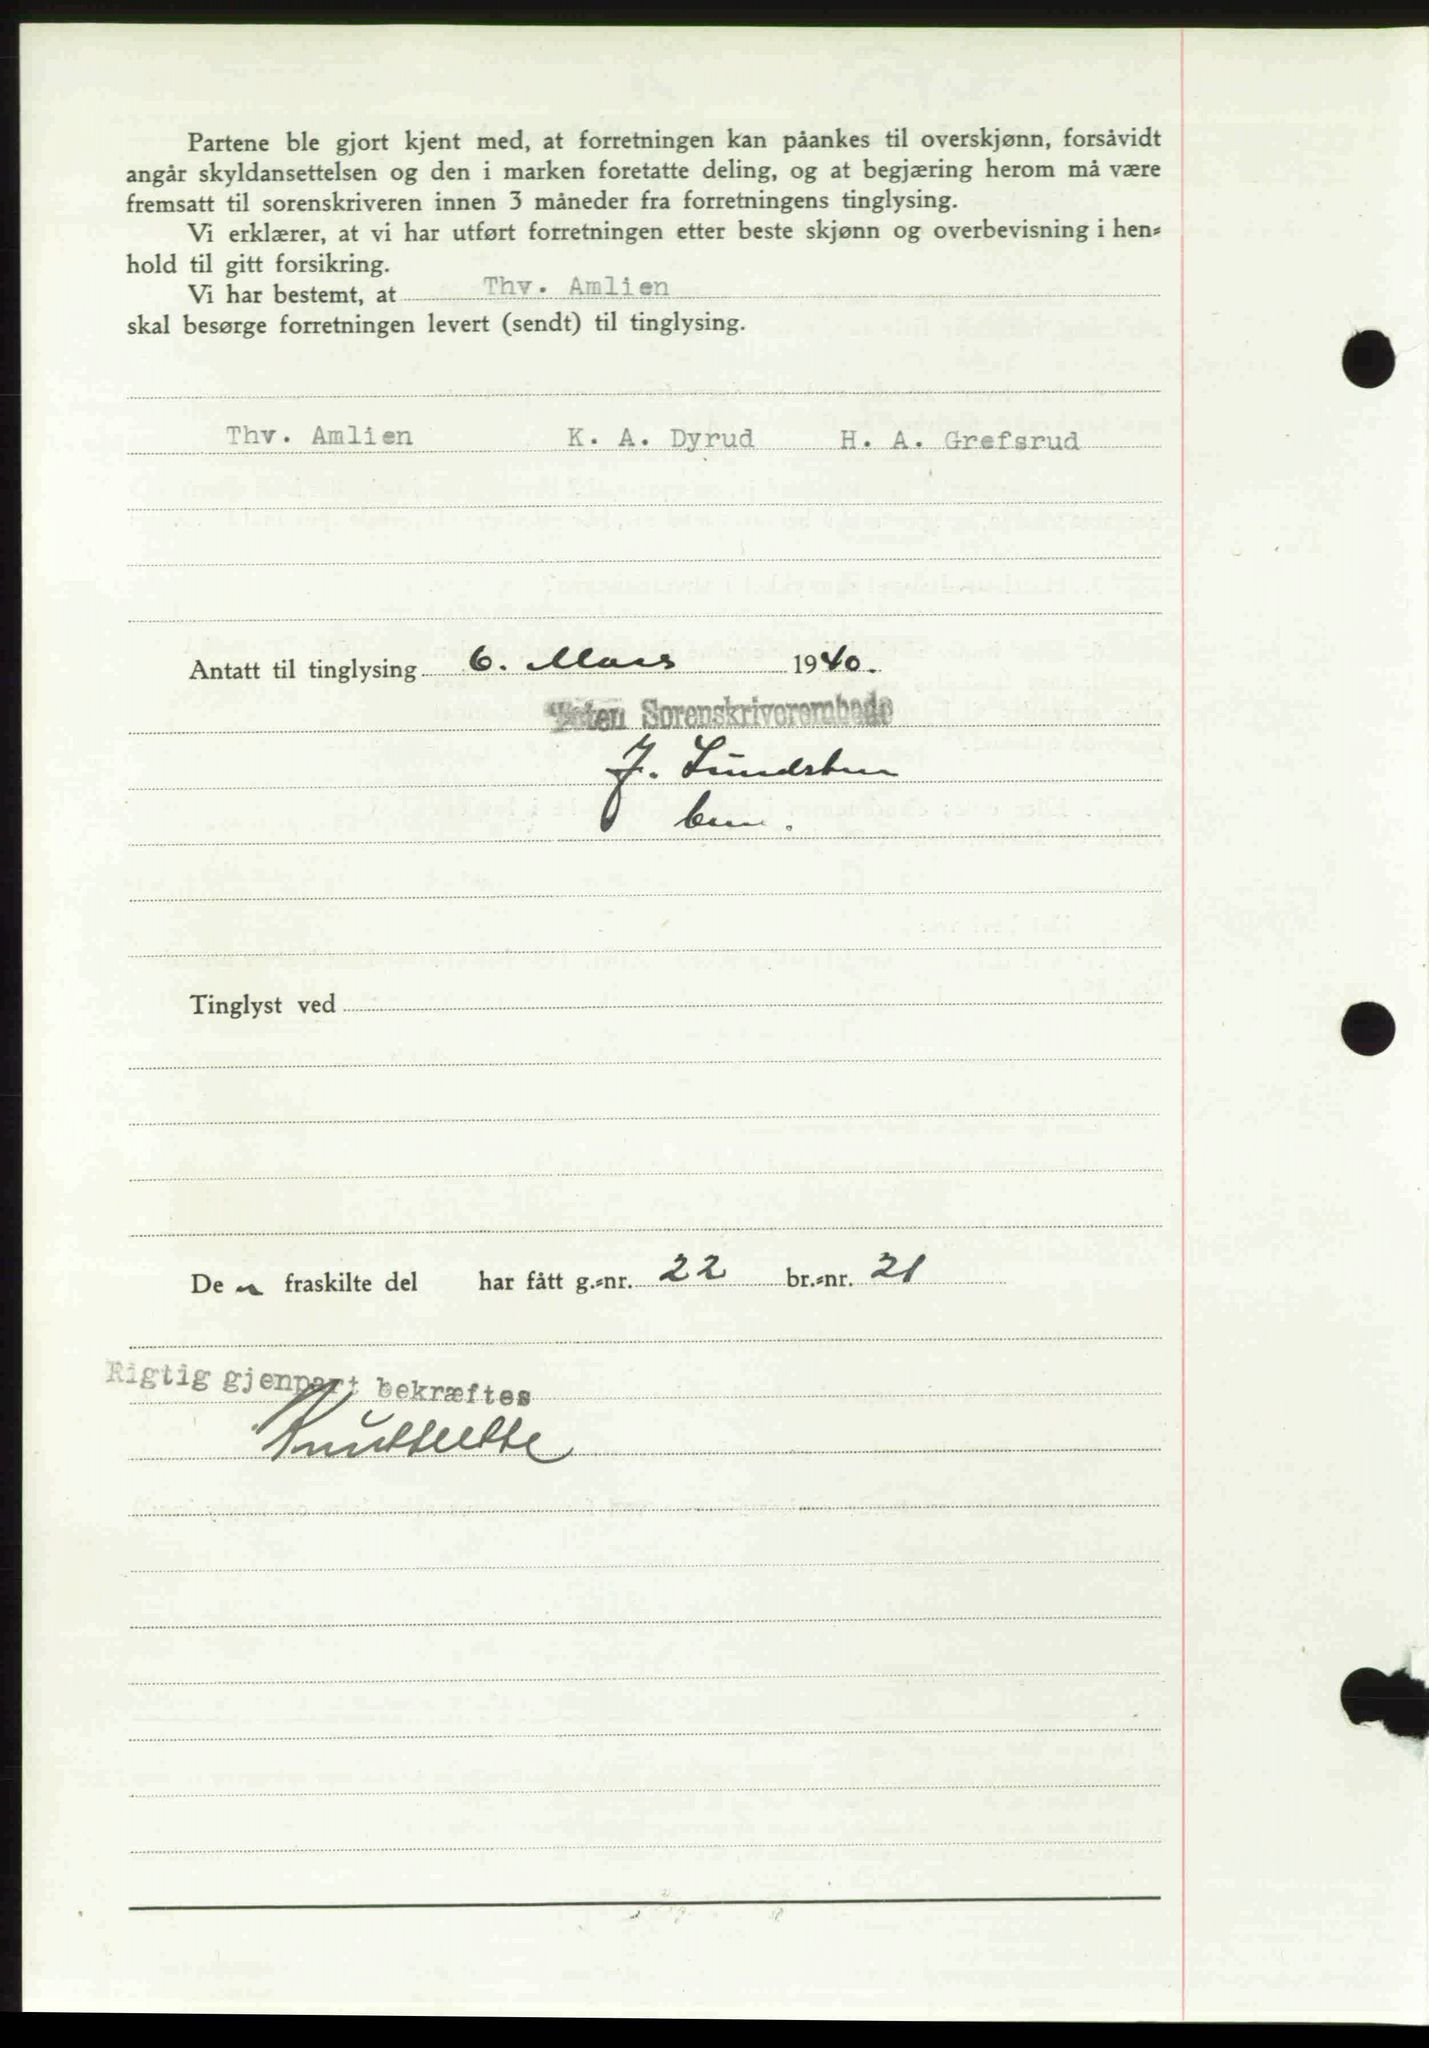 Partene ble gjort kjent med, at forretningen kan påankes til overskjønn, forsåvidt
angår skyldansettelsen og den i marken foretatte deling, og at begjæring herom må være
fremsatt til sorenskriveren innen 3 måneder fra forretningens tinglysing.
Vi erklærer, at vi har utført forretningen etter beste skjønn og overbevisning i hen-
hold til gitt forsikring.
Vi har bestemt, at Thv. Amlien
skal besørge forretningen levert (sendt) til tinglysing.
Thv. Amlien K. A. Dyrud H. A. Grefsrud
Antatt til tinglysing 6. Mars 1940.
Toten Sorenskriverembede
J. Lundsten
Tinglyst ved
De n fraskilte del har fått g.-nr. 22 br.-nr. 21
Rigtig gjenpart bekræftes